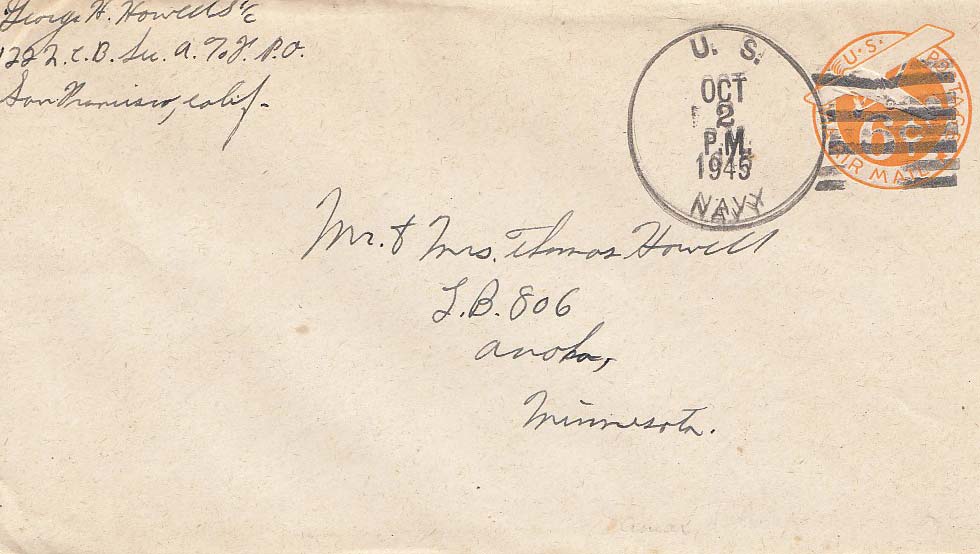 George H. Howell S 1/c
122 N.C.B. Sec. A. % F.P.O.
San Francisco, Calif.
U. S.
OCT
2
P.M.
1945
NAVY
U.S. POSTAGE
6¢
AIR MAIL
Mr. & Mrs. Thomas Howell
L.B. 806
Anoka,
Minnesota.